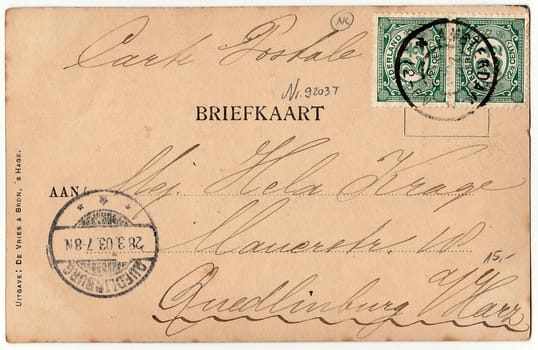 AK
Carte Postale
NEDERLAND 2½ CENT
NEDERLAND 2½ CENT
Nr. 92037
BRIEFKAART
AAN
Mej. Hela Krage
Mauerstr.
15,-
Quedlinburg a/Harz
QUEDLINBURG
28.3.03.7-8N
UITGAVE: DE VRIES & BRON, 'S HAGE.